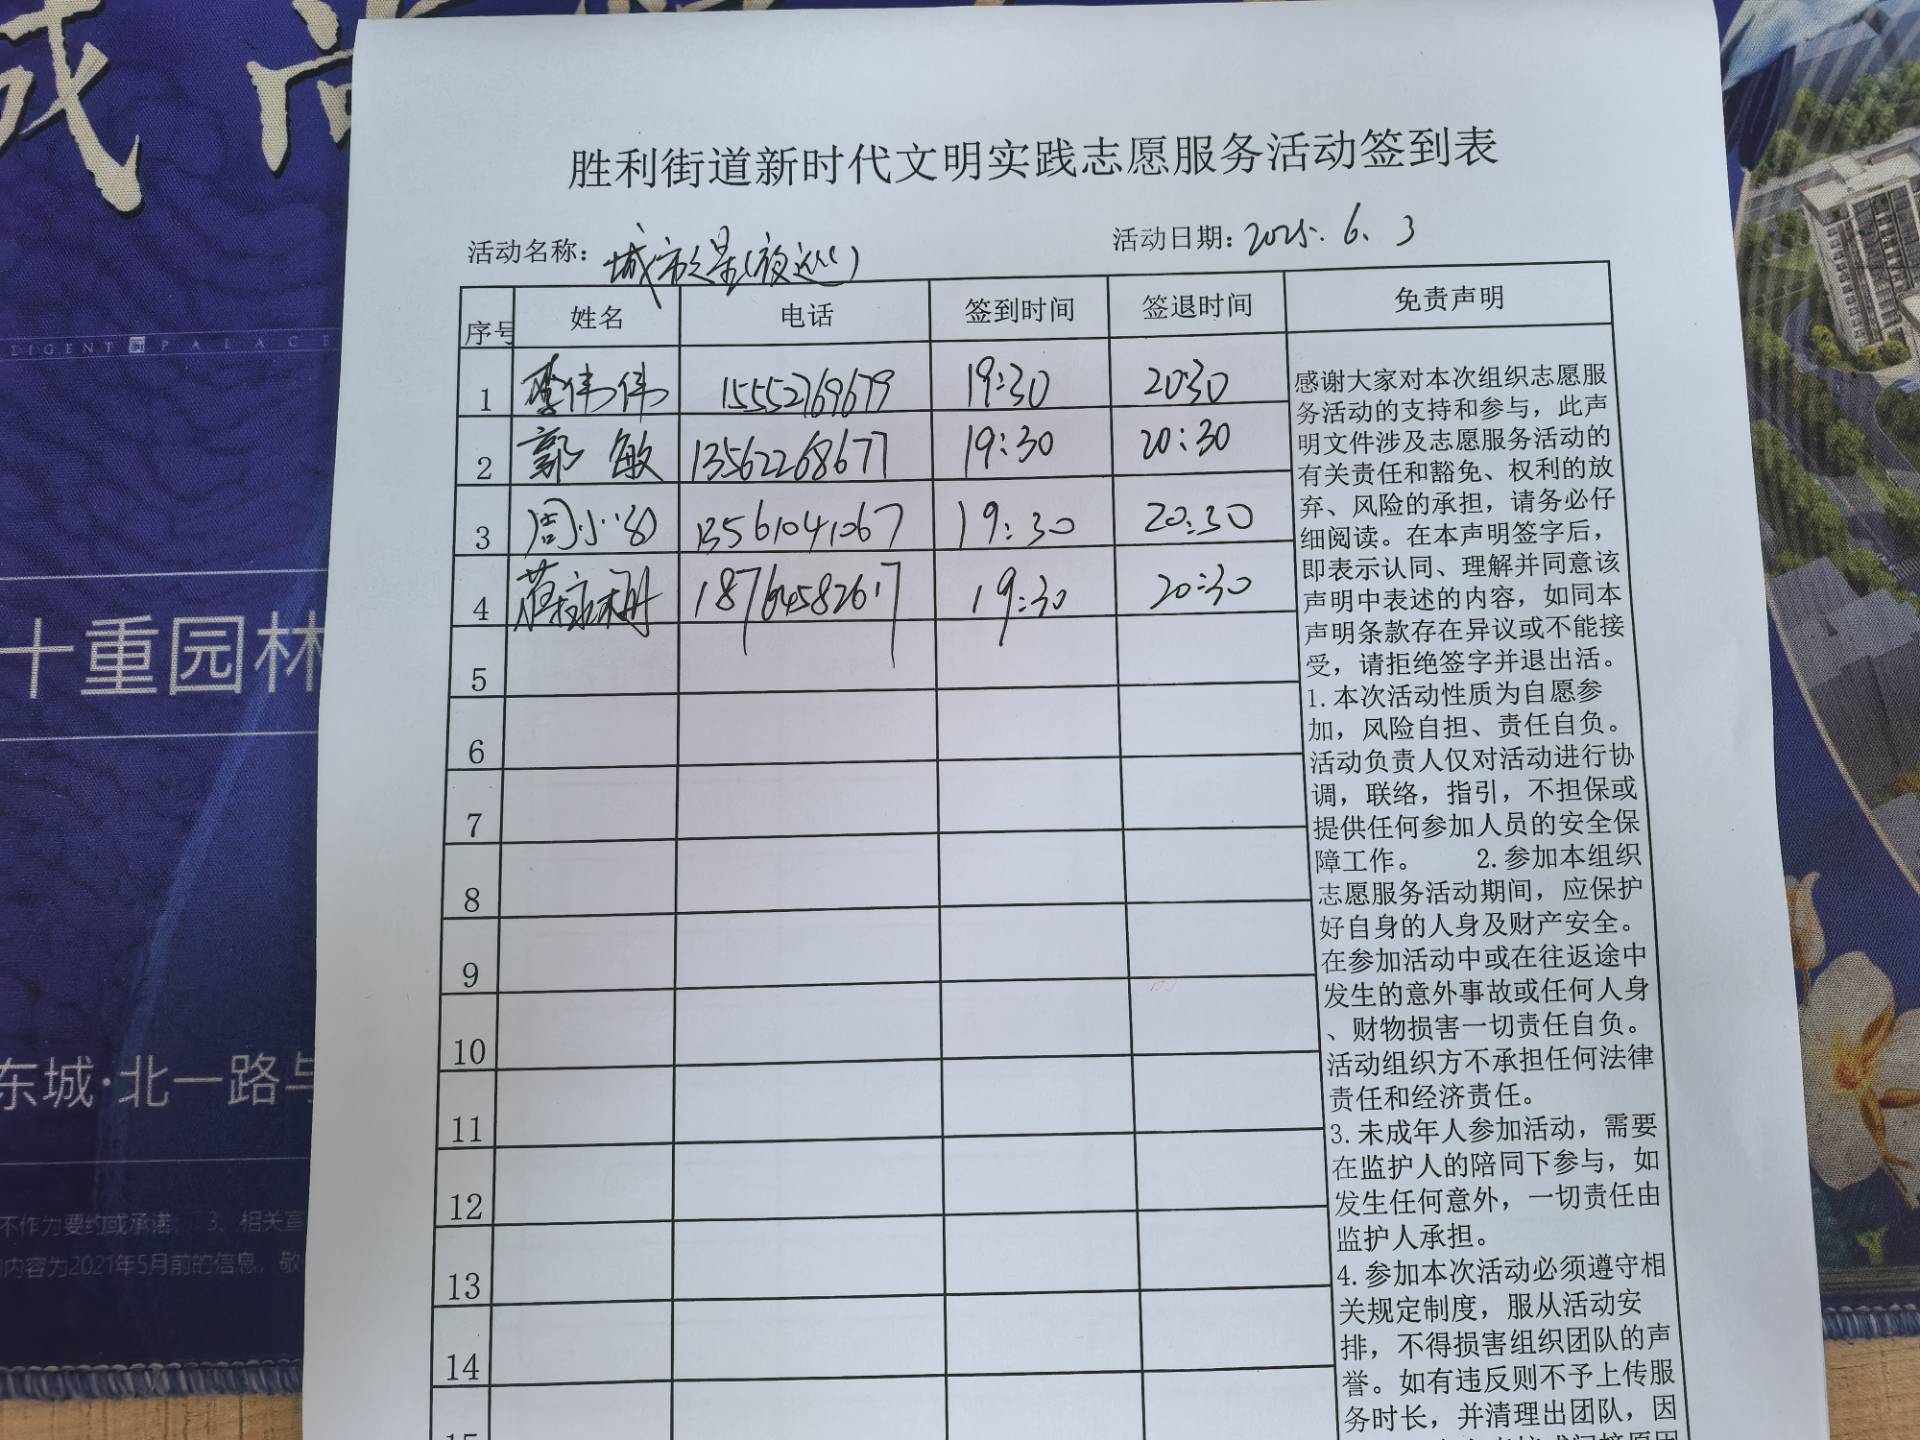 LIGENT PALACE
十重园林
东城·北一路与
不作为要约或承诺; 3、相关宣
内容为2021年5月前的信息,敬
胜利街道新时代文明实践志愿服务活动签到表
活动名称: 城市之星(夜巡) 活动日期: 2025.6.3
序号 姓名 电话 签到时间 签退时间 免责声明
1 李伟伟 15552769679 19:30 20:30
2 郭敏 13562268677 19:30 20:30
3 周小 13561041067 19:30 20:30
4 18764582617 19:30 20:30
5
6
7
8
9
10
11
12
13
14
15
感谢大家对本次组织志愿服
务活动的支持和参与,此声
明文件涉及志愿服务活动的
有关责任和豁免、权利的放
弃、风险的承担,请务必仔
细阅读。在本声明签字后,
即表示认同、理解并同意该
声明中表述的内容,如同本
声明条款存在异议或不能接
受,请拒绝签字并退出活。
1.本次活动性质为自愿参
加,风险自担、责任自负。
活动负责人仅对活动进行协
调,联络,指引,不担保或
提供任何参加人员的安全保
障工作。 2.参加本组织
志愿服务活动期间,应保护
好自身的人身及财产安全。
在参加活动中或在往返途中
发生的意外事故或任何人身
、财物损害一切责任自负。
活动组织方不承担任何法律
责任和经济责任。
3.未成年人参加活动,需要
在监护人的陪同下参与,如
发生任何意外,一切责任由
监护人承担。
4.参加本次活动必须遵守相
关规定制度,服从活动安
排,不得损害组织团队的声
誉。如有违反则不予上传服
务时长,并清理出团队,因